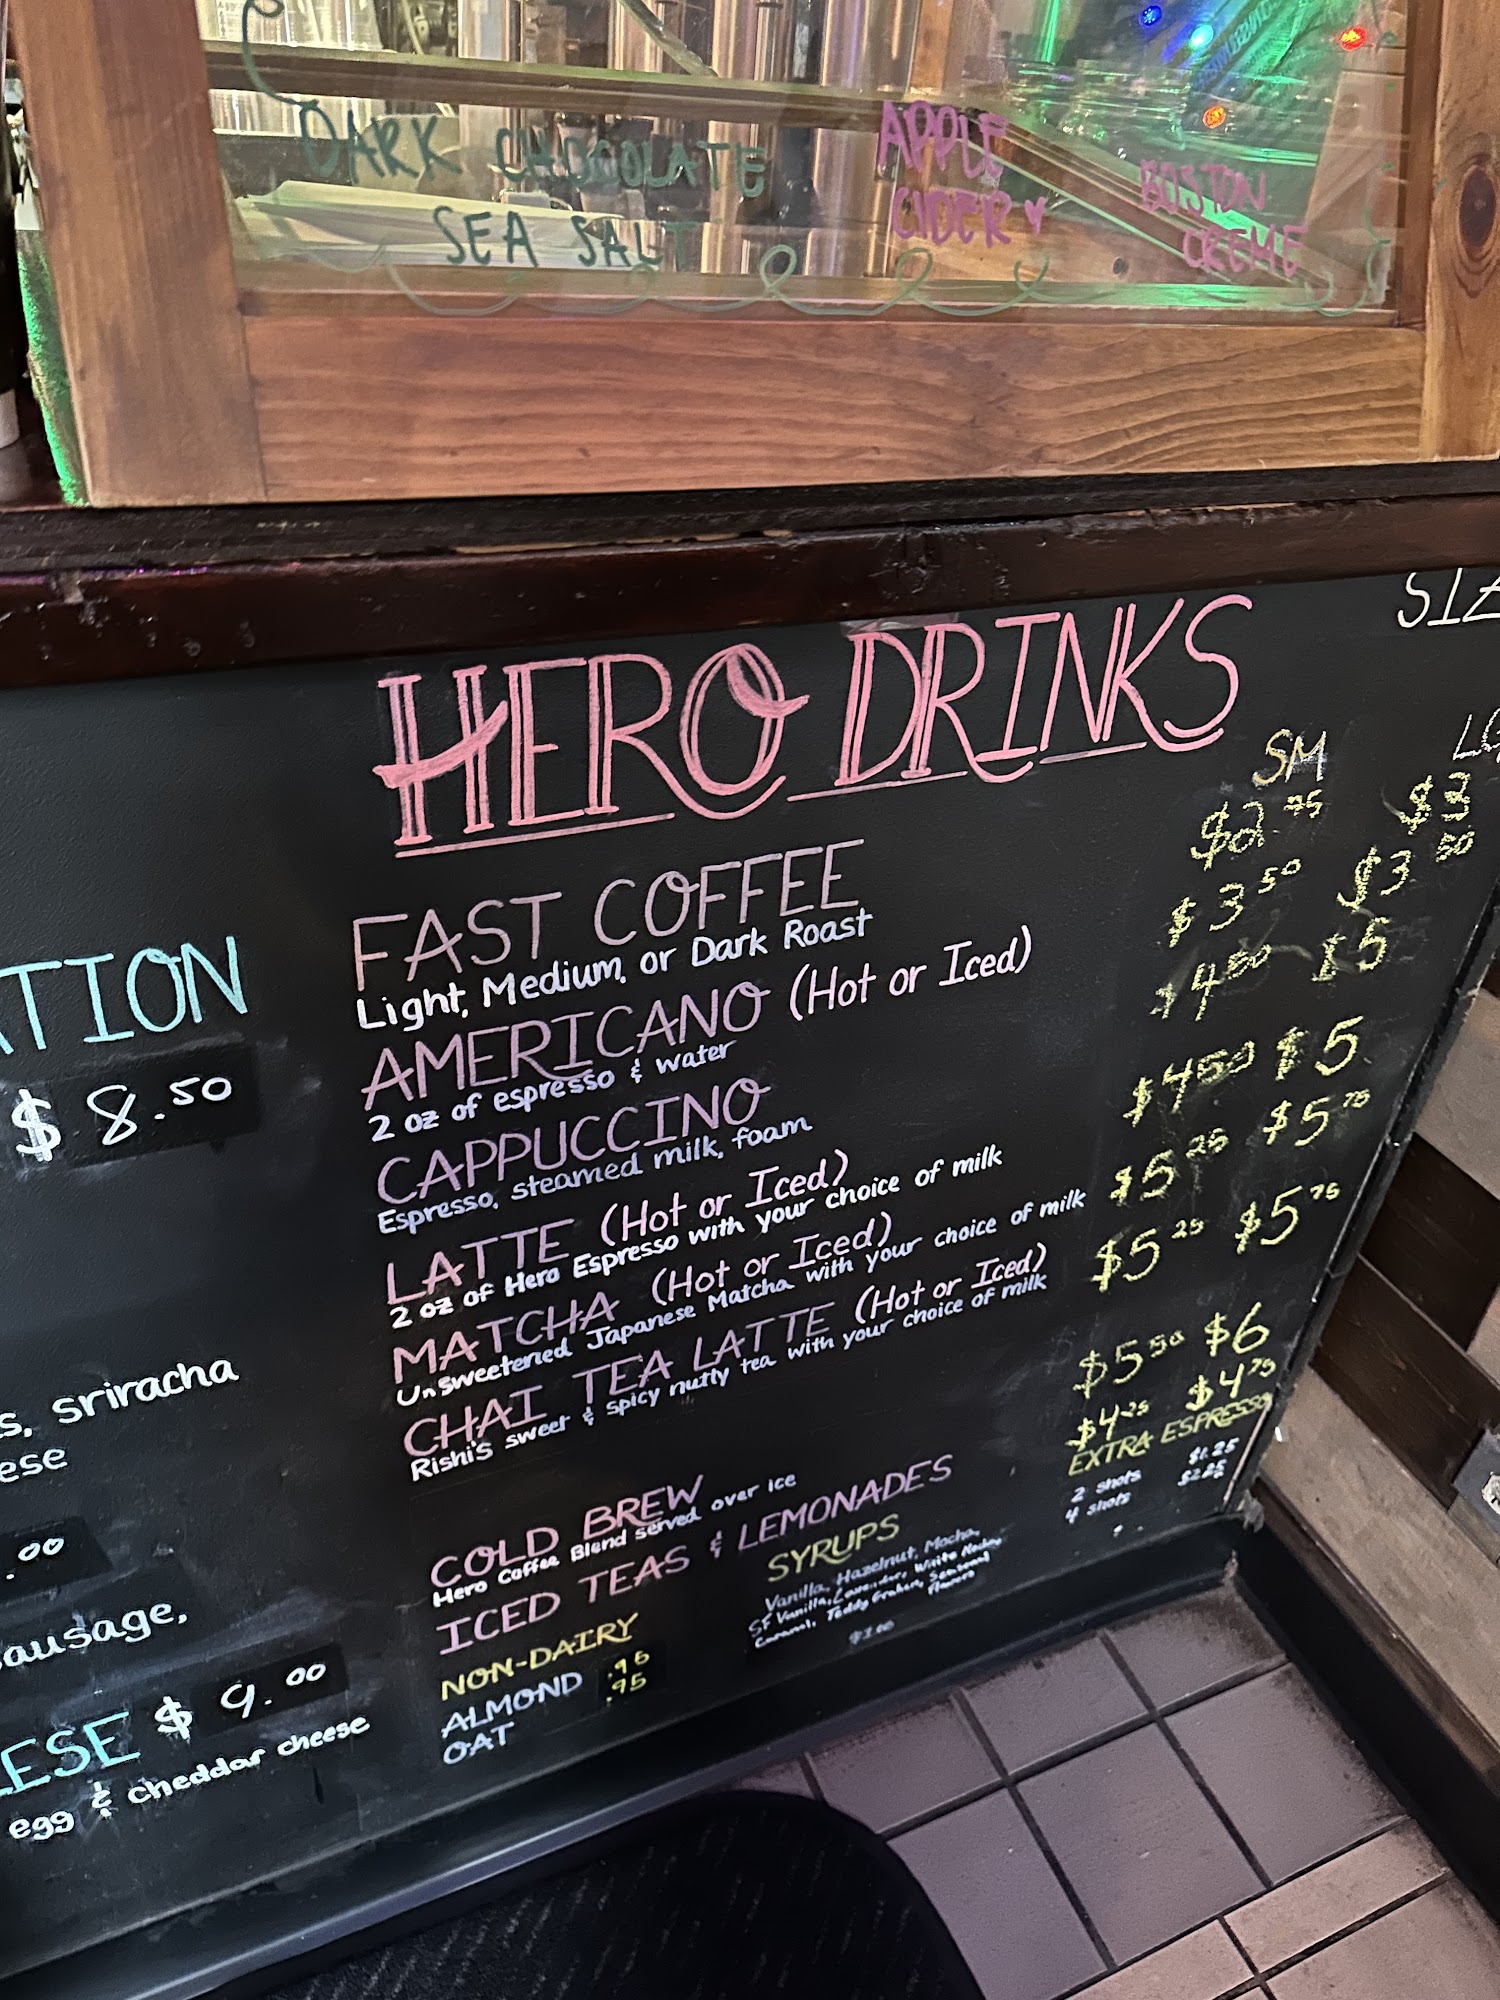 DARK CHOCOLATE
SEA SALT
APPLE
CIDER
BOSTON
CREME
HERO DRINKS
SM
FAST COFFEE $2.75 $3
Light, Medium, or Dark Roast
AMERICANO (Hot or Iced) $3 50 $3 50
2 oz of espresso & water
CAPPUCCINO $4 50 $5
Espresso, steamed milk, foam
LATTE (Hot or Iced) $4 50 $5
2 oz of Hero Espresso with your choice of milk
MATCHA (Hot or Iced) $5 25 $5 75
Unsweetened Japanese Matcha with your choice of milk
CHAI TEA LATTE (Hot or Iced) $5 25 $5 75
Rishi's sweet & spicy nutty tea with your choice of milk
COLD BREW $5 50 $6
Hero Coffee Blend served over ice
ICED TEAS & LEMONADES $4.25 $4.75
NON-DAIRY
ALMOND .95
OAT .95
SYRUPS
Vanilla, Hazelnut, Mocha,
SF Vanilla, Lavender, White Mocha
Caramel, Teddy Graham, Seasonal
Flavors
EXTRA ESPRESSO
2 shots $1.25
4 shots $2.25
ATION
$8.50
s, sriracha
ese
.00
ausage,
ESE $9.00
egg & cheddar cheese